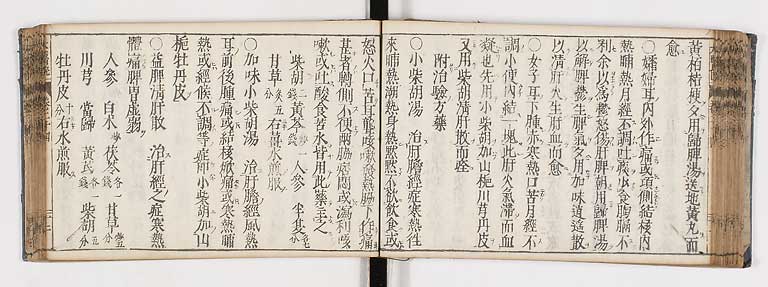 黃柏桔梗夕用歸脾湯送地黃丸而
愈
○孀婦耳內外作痛或項側結核內
熱晡熱月經不調吐痰少食胸膈不
利余以為鬱怒傷肝脾朝用歸脾湯
以解脾鬱生脾氣夕用加味逍遙散
以清肝火生肝血而愈
○女子耳下腫赤寒熱口苦月經不
調小便內結一塊此肝火氣滯而血
凝也先用小柴胡加山梔川芎丹皮
又用柴胡清肝散而痊
附治驗方藥
○小柴胡湯 治肝膽經症寒熱往
來晡熱潮熱身熱默默不欲飲食或
怒火口苦耳聾咳嗽發熱脇下作痛
甚者轉側不便兩脇痞悶或瀉利咳
嗽或吐酸食苦水皆用此藥主之
柴胡二錢 黃芩一錢 人參 半夏各七分
甘草炙五分 右薑水煎服
○加味小柴胡湯 治肝膽經風熱
耳前後腫痛或結核焮痛或寒熱晡
熱或經候不調等症即小柴胡加山
梔牡丹皮
○益脾清肝散 治肝經之症寒熱
體痛脾胃虛弱
人參 白朮 茯苓各一錢 甘草五分
川芎 當歸 黃芪各一錢 柴胡五分
牡丹皮五分 右水煎服